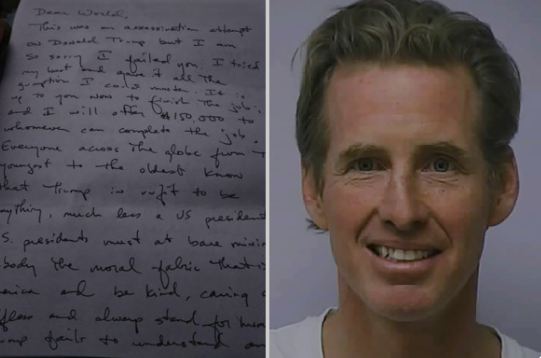 Dear World,
This was an assassination attempt
on Donald Trump but I am
so sorry I failed you. I tried
my best and gave it all the
gumption I could muster. It is
up to you now to finish the job;
and I will offer $150,000 to
whomever can complete the job.
Everyone across the globe from
youngest to the oldest know
that Trump is unfit to be
ything, much less a US president
S. presidents must at bare minim
body the moral fabric that is
erica and be kind, caring
fless and always stand for human
ump fails to understand an